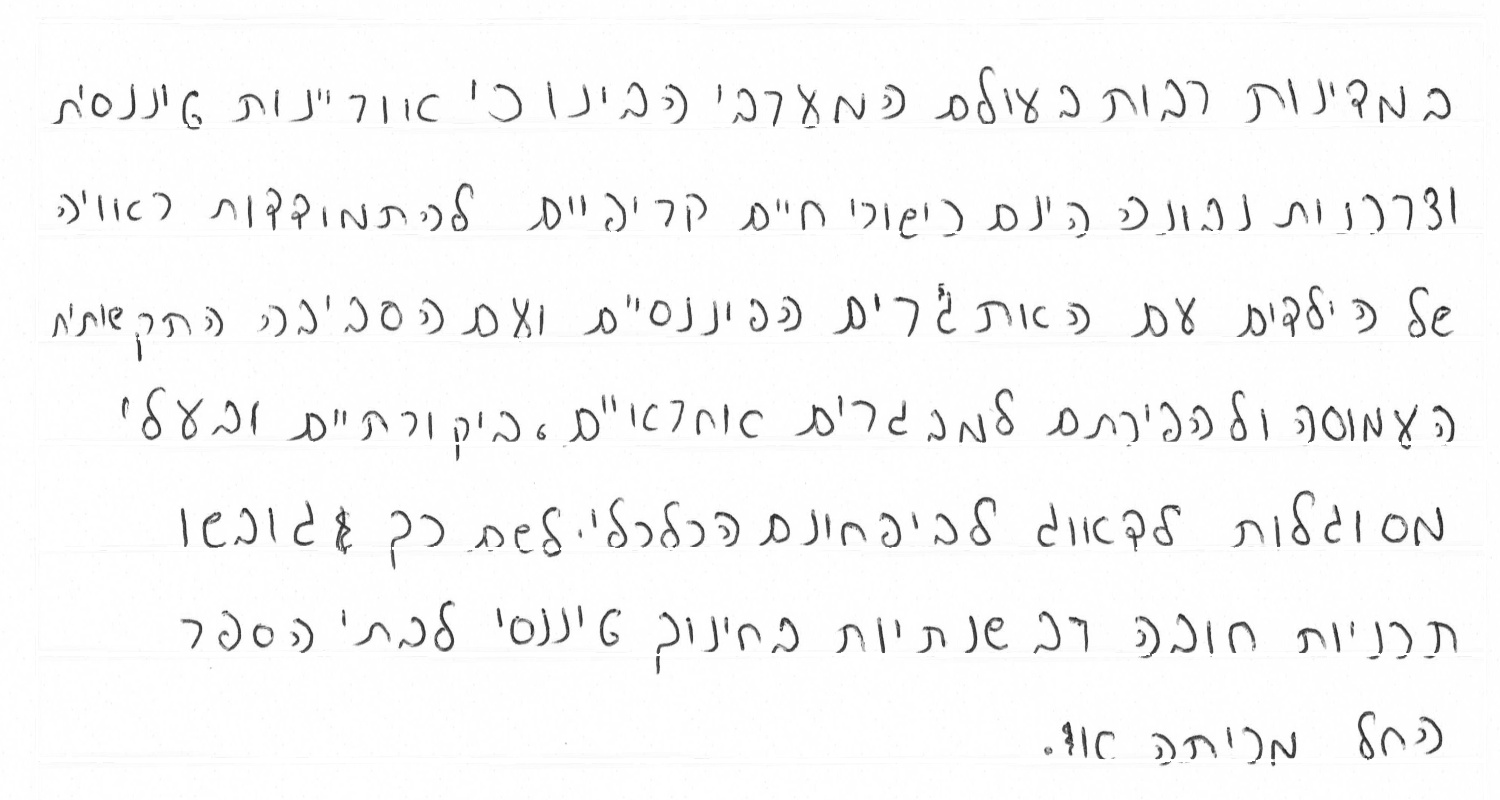 במדינות רבות בעולם המערבי הבינו כי אוריינות פיננסית
וצרכנות נבונה הינם כישורי חיים קריטיים להתמודדות ראויה
של הילדים עם האתגרים הפיננסיים ועם הסביבה התקשותית
העמוסה ולהפיכתם למבגרים אחראיים, ביקורתיים ובעלי
מסוגלות לדאוג לביטחונם הכלכלי. לשם כך גובשו
תכניות חובה רב שנתיות בחינוך פיננסי לבתי הספר
החל מכיתה א'.